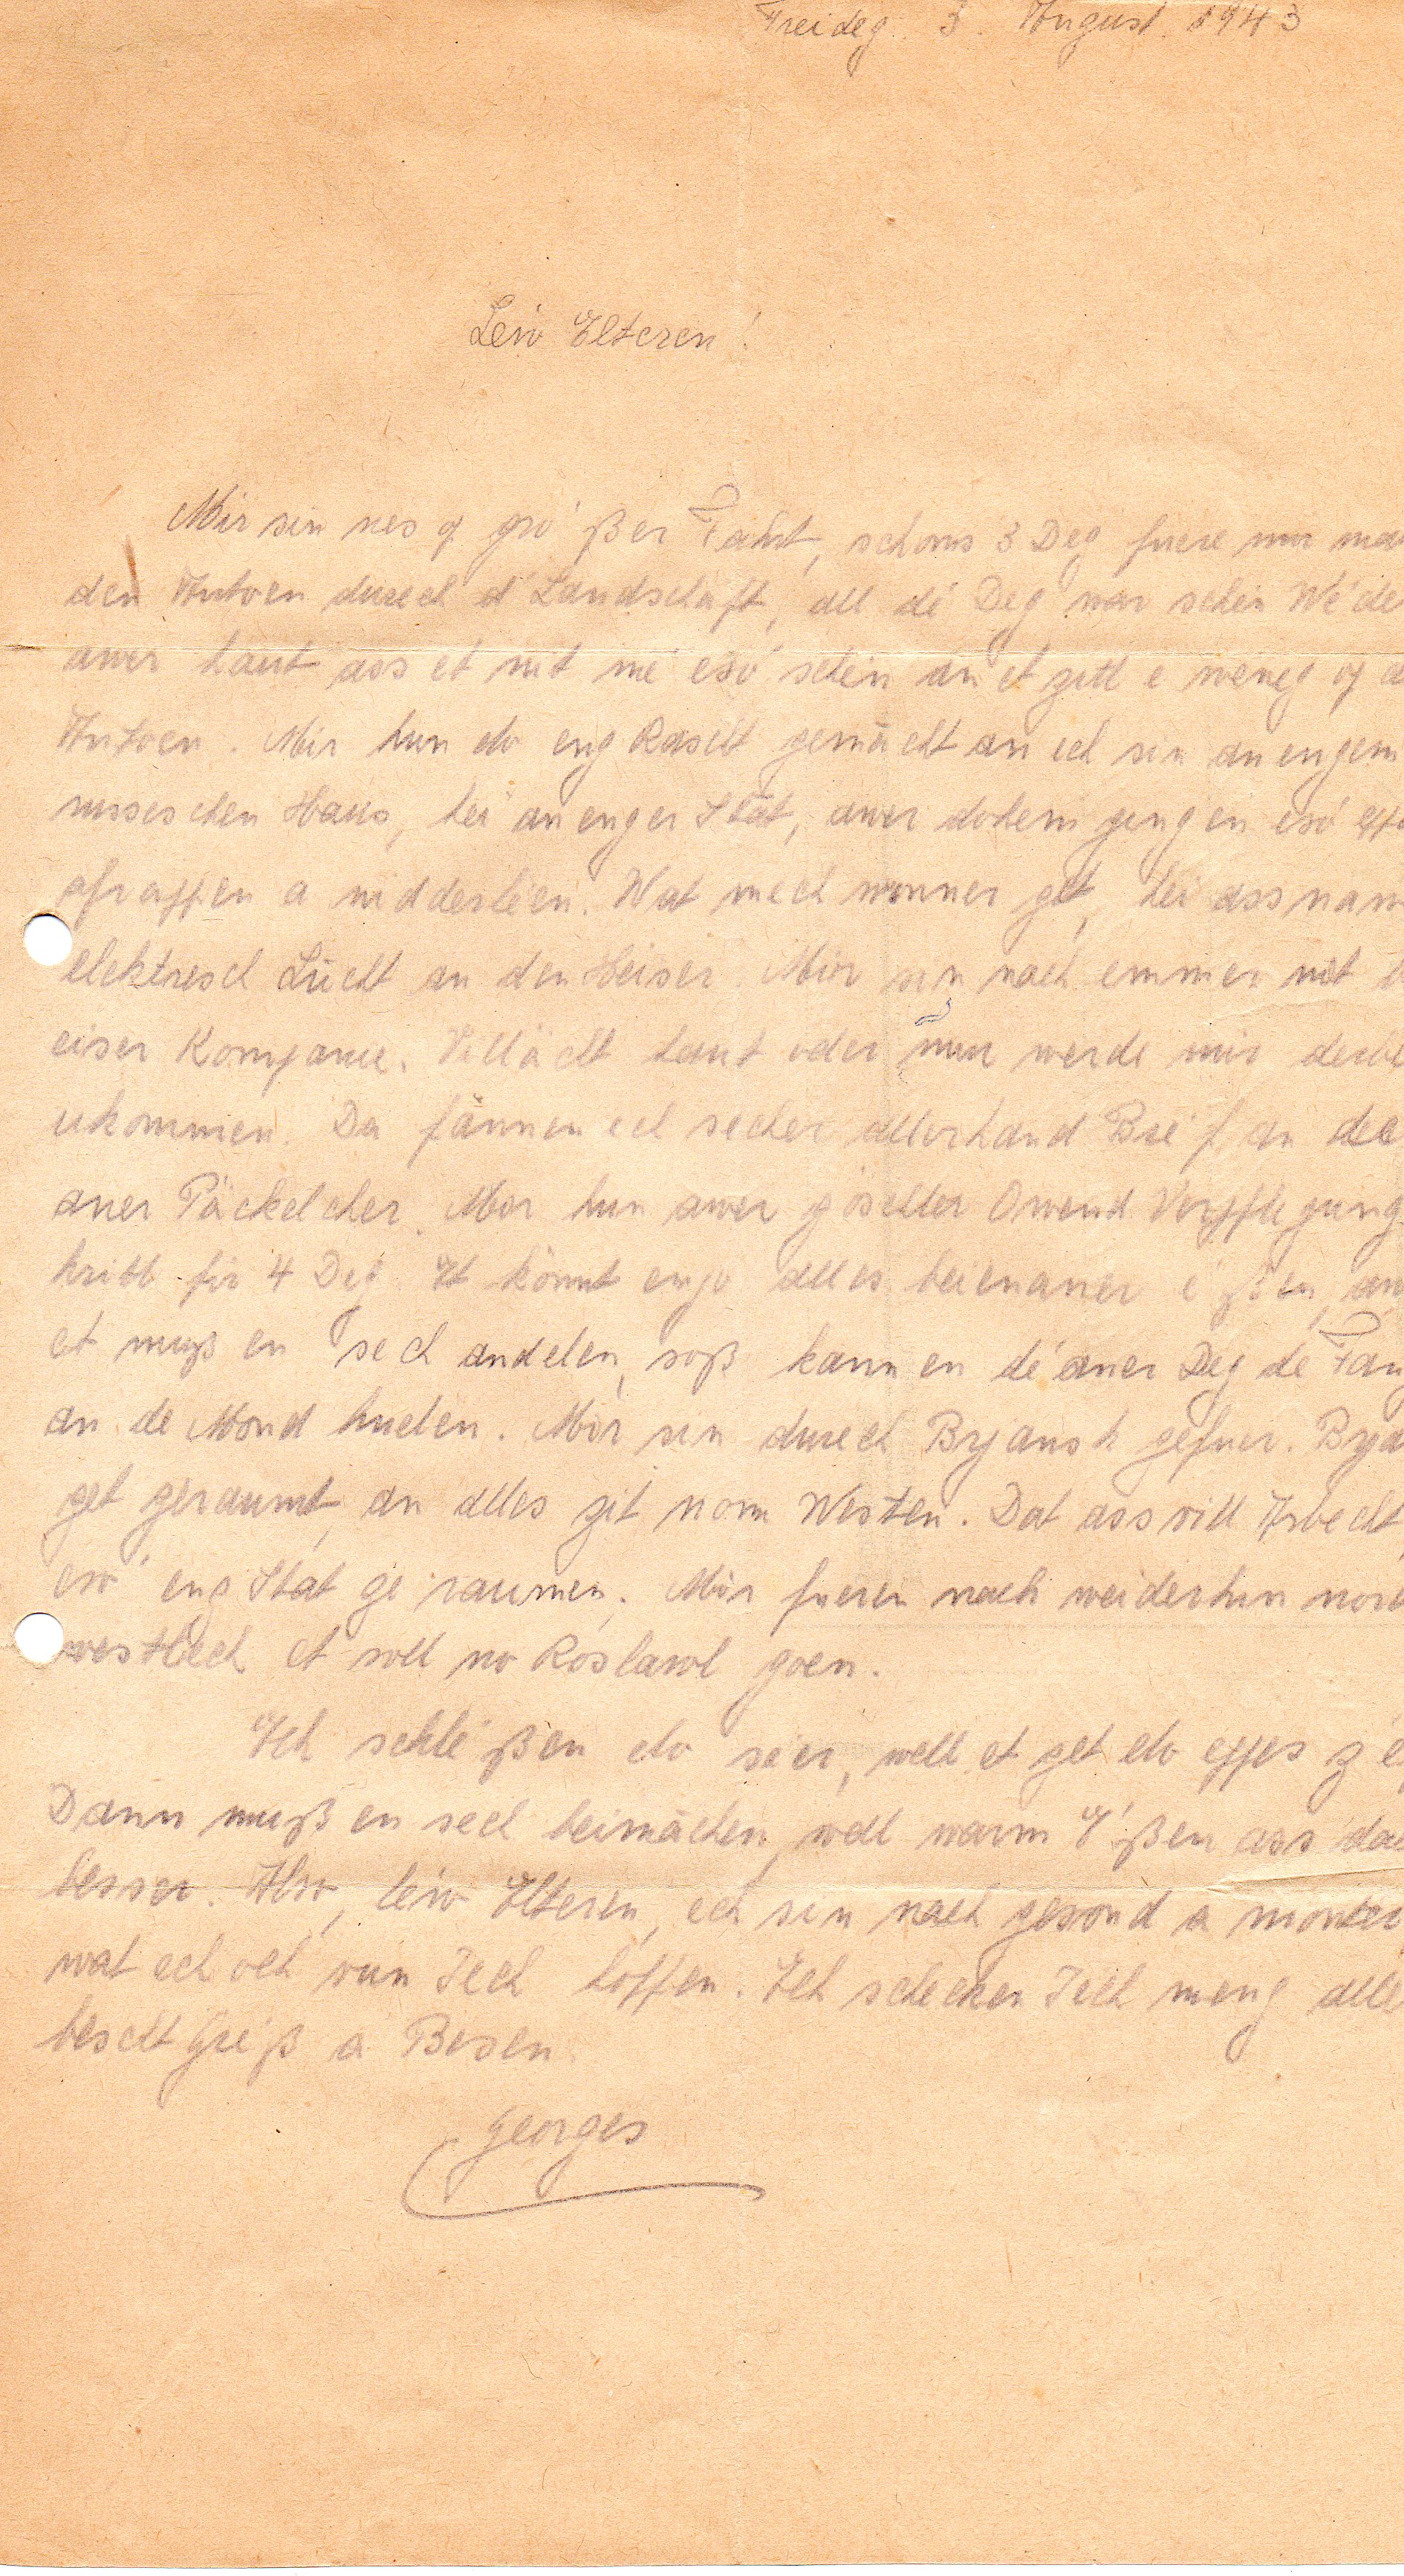 Freideg 3. August 1943
Leiw Elteren!
Mir sin nes op gro'ßer Fahrt, schons 3 Deg fuere mir mat
den Autoen durech d'Landschaft, all dé Deg war schein Wé'de
awer haut ass et nit mé esó schein an et zitt e weneg op d
Autoen. Mir hun elo eng Rascht gemácht an ech sin an engem
russeschen Haus, hei an enger Stát, awer dohem gengen esó
ofraffen a nidderleën. Wat mech wonner get, hei ass
elektresch Lücht an den Heiser. Mir sin nach emmer net b
eiser Kompanie. Villächt haut oder mur werde mir derbe
ukommen. Da fannen ech secher allerhand Breif an de
aner Päckelcher. Mir hun awer göschter Owend Verpflegung
kritt fir 4 Deg. Et könnt en jo alles beienaner é'ßen, aw
et muß en sech andelen, soß kann en dé aner Deg dé Fan
an de Mond huelen. Mir sin durech Brjansk gefuer. Brja
get geraumt, an alles zit nom Westen. Dat ass vill Arbecht,
esó eng Stát ze raumen. Mir fueren nach weiderhin nord
westlech et soll no Roslawl goen.
Ech schle'ßen elo seier, well et get elo eppes z'e
Dann muß en sech beimáchen, well warm I'ßen ass da
besser. Also, leiw Elteren, ech sin nach gesond a monter
wat ech och vun Iech hoffen. Ech schecken Iech meng alle
bescht Greiß a Besen.
Georges